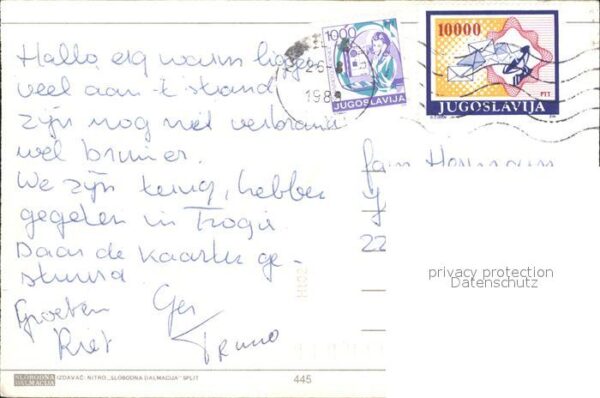 Hallo erg warm liggen
veel aan 't strand
zijn nog niet verbrand
wel bruiner.
We zijn terug, hebben
gegeten in Trogir
Daar de kaarten ge-
stuurd
Groeten Ger
Riet
1000
JUGOSLAVIJA
10000
PTT
JUGOSLAVIJA
Fam
22
privacy protection
Datenschutz
SLOBODNA
DALMACIJA
IZDAVAČ: NITRO „SLOBODNA DALMACIJA" SPLIT
445